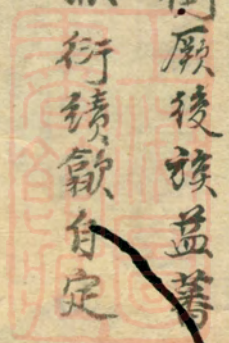 厥後族益蕃
衍績歙自定